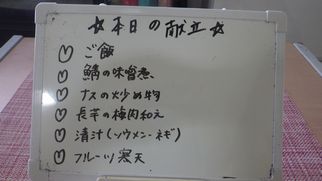 ☆本日の献立☆
ご飯
鯖の味噌煮
ナスの炒め物
長芋の梅肉和え
清汁(ソウメン・ネギ)
フルーツ寒天